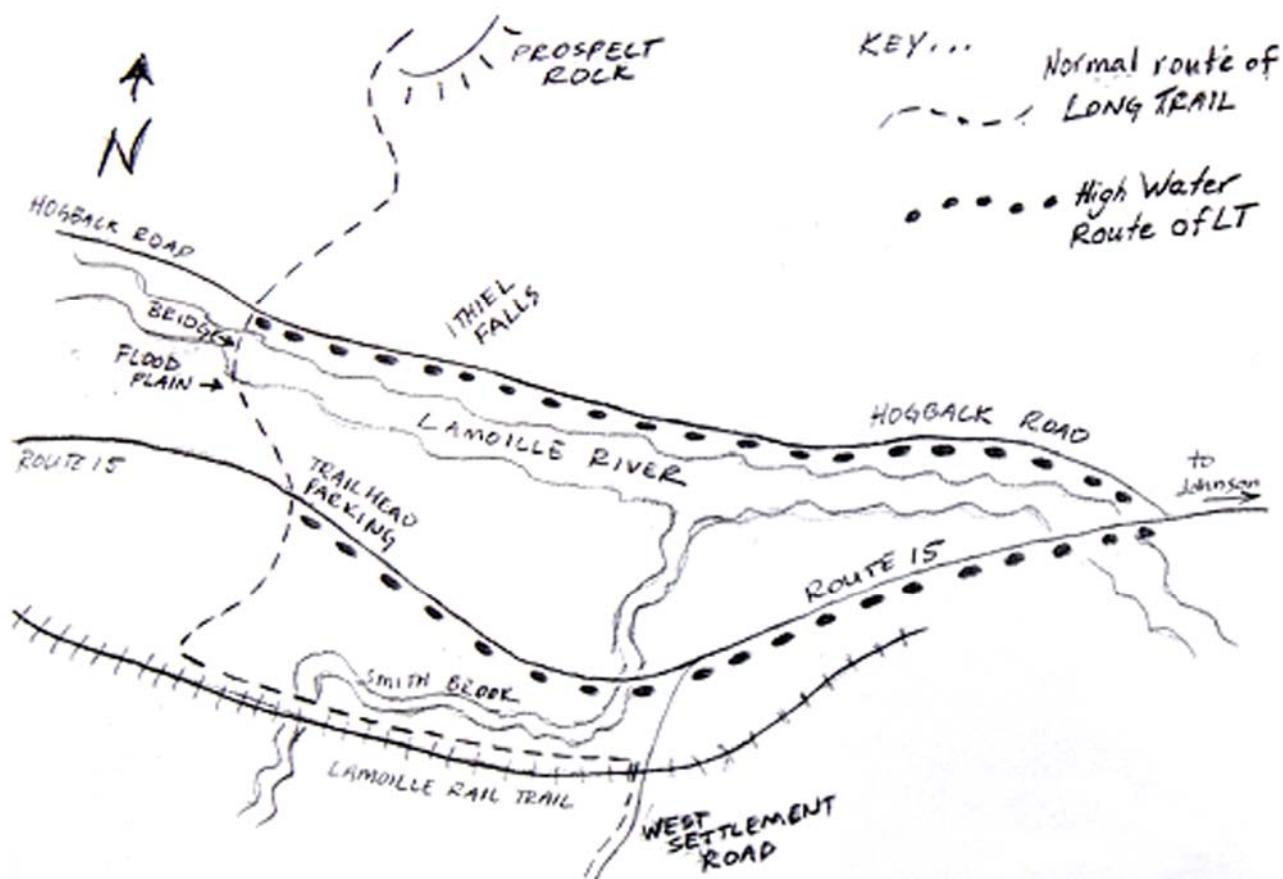 PROSPELT
ROCK
KEY...
Normal route of
LONG TRAIL
High Water
Route of LT
N
HOGBACK ROAD
BRIDGE
FLOOD
PLAIN
ITHIEL
FALLS
LAMOILLE RIVER
HOGBACK ROAD
to
Johnson
ROUTE 15
TRAILHEAD
PARKING
ROUTE 15
SMITH BROOK
LAMOILLE RAIL TRAIL
WEST
SETTLEMENT
ROAD